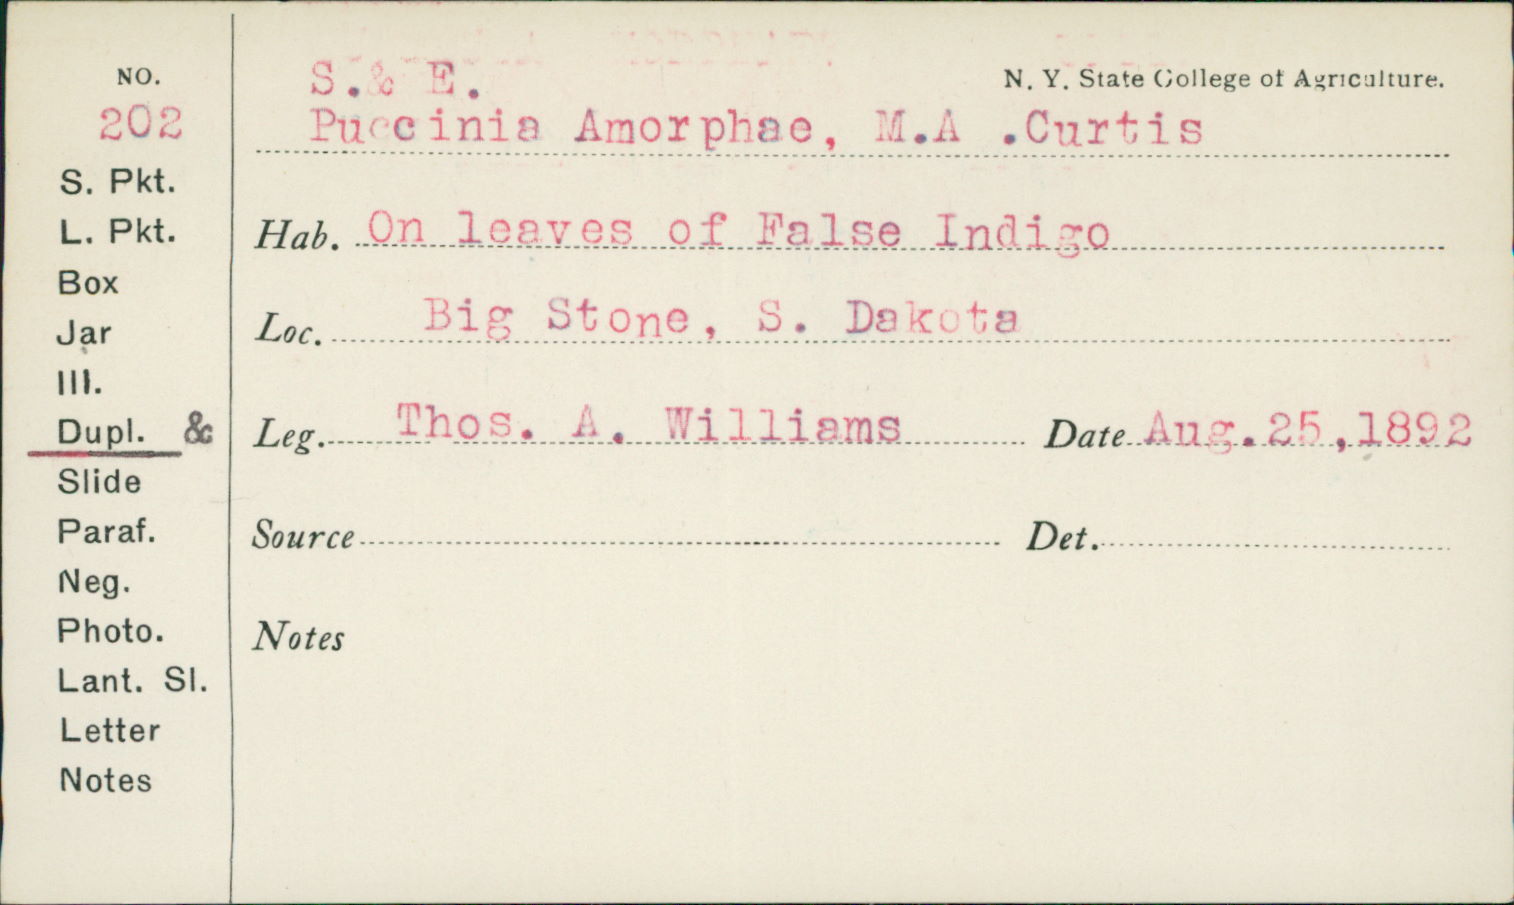 NO.
202
S. Pkt.
L. Pkt.
Box
Jar
Ill.
Dupl. &
Slide
Paraf.
Neg.
Photo.
Lant. Sl.
Letter
Notes
S.& E.
N. Y. State College of Agriculture.
Puccinia Amorphae, M.A .Curtis
Hab. On leaves of False Indigo
Loc. Big Stone, S. Dakota
Leg. Thos. A. Williams Date Aug.25,1892
Source Det.
Notes